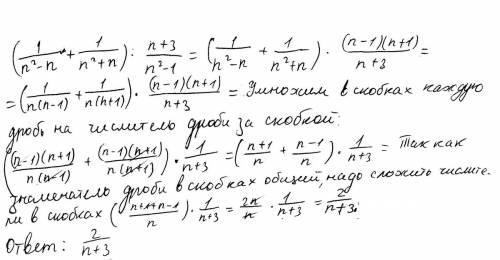 (1/(n²-n) + 1/(n²+n)) : (n+3)/(n²-1) = (1/(n²-n) + 1/(n²+n)) · ((n-1)(n+1))/(n+3) =
= (1/(n(n-1)) + 1/(n(n+1))) · ((n-1)(n+1))/(n+3) = Умножим в скобках каждую
дробь на числитель дроби за скобкой:
(((n-1)(n+1))/(n(n-1)) + ((n-1)(n+1))/(n(n+1))) · 1/(n+3) = ((n+1)/n + (n-1)/n) · 1/(n+3) = Так как
знаменатель дроби в скобках общий, надо сложить числите-
ли в скобках ((n+1+n-1)/n) · 1/(n+3) = 2n/n · 1/(n+3) = 2/(n+3).
Ответ: 2/(n+3)